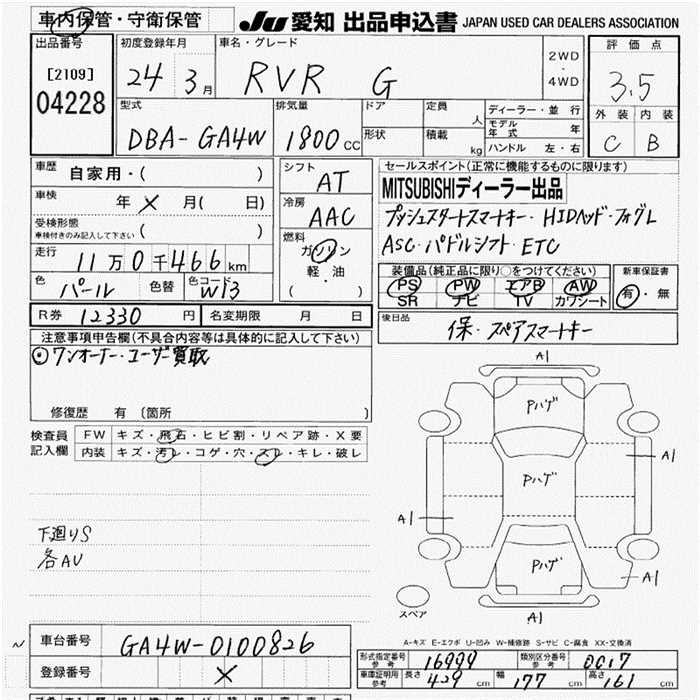 車内保管・守衛保管
JU 愛知 出品申込書 JAPAN USED CAR DEALERS ASSOCIATION
出品番号
[2109]
04228
初度登録年月
24 3月
車名・グレード
RVR G
2WD
・
4WD
評価点
3.5
外装 内装
C B
型式
DBA-GA4W
排気量
1800cc
ドア
形状
定員
人
積載
kg
ディーラー・並行
モデル年式 年
ハンドル 左・右
車歴
自家用・( )
車検
年 × 月( 日)
受検形態
車検付きのみ記入して下さい ( )
走行
11万0千466km
色
パール
色替
色コード
W13
シフト
AT
冷房
AAC
燃料
ガソリン
軽・油
( )
セールスポイント(正常に機能するものに限ります)
MITSUBISHIディーラー出品
プッシュスタートスマートキー・HIDヘッド・フォグL
ASC・パドルシフト・ETC
装備品(純正品に限り○をつけてください)
PS PW エアB AW
SR ナビ TV カワシート
新車保証書
有・無
R券 12330円
名変期限 月 日
後日品
保・スペアスマートキー
注意事項申告欄(不具合内容等は具体的に記入して下さい)
◎ワンオーナー・ユーザー買取
修復歴 有 (箇所 )
検査員
記入欄
FW キズ・飛石・ヒビ割・リペア跡・X要
内装 キズ・汚レ・コゲ・穴・スレ・キレ・破レ
下廻りS
各AU
A1
Pハゲ
A1
Pハゲ
A1
Pハゲ
A1
スペア
A1
A-キズ E-エクボ U-凹み W-補修跡 S-サビ C-腐食 XX-交換済
車台番号
GA4W-0100826
登録番号
×
形式指定番号
参考
16999
類別区分番号
参考
0017
車庫証明用
参考
長さ 429cm 幅 177cm 高さ 161cm